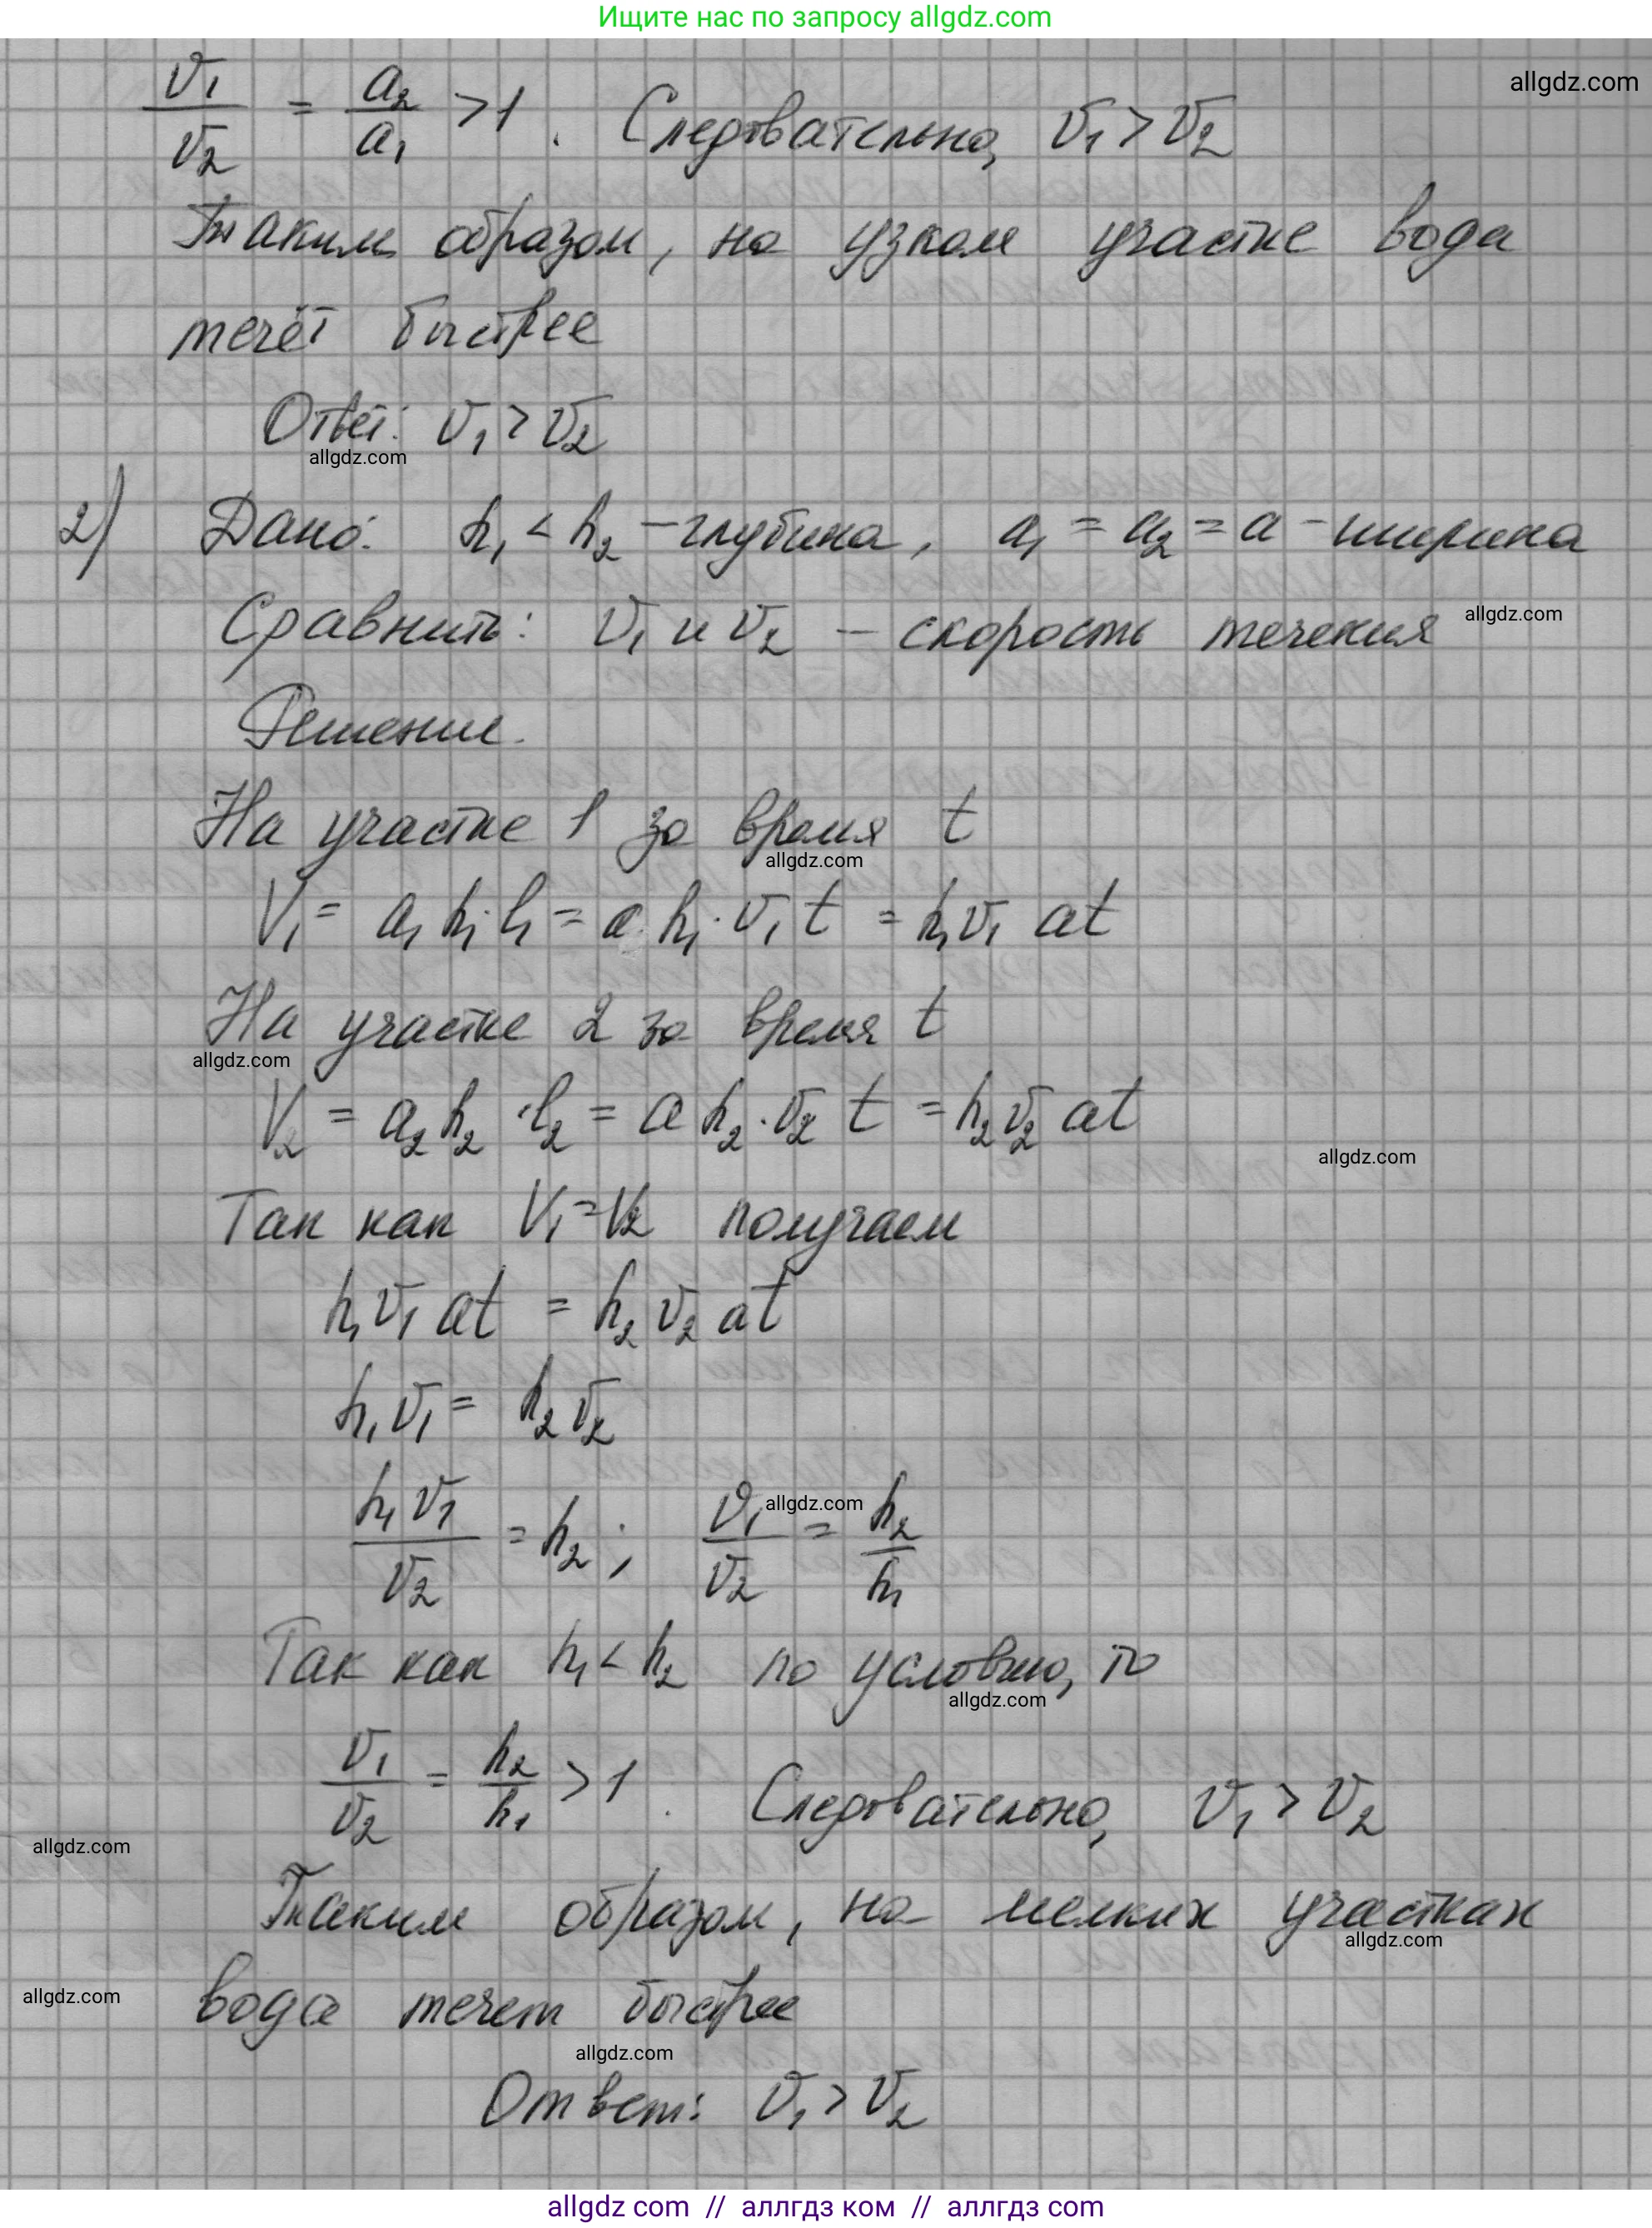 Ищите нас по запросу allgdz.com
allgdz.com
v₁/v₂ = a₂/a₁ > 1. Следовательно, v₁ > v₂
Таким образом, на узком участке вода
течёт быстрее
Ответ: v₁ > v₂
allgdz.com
2) Дано: h₁ < h₂ – глубина, a₁ = a₂ = a – ширина
allgdz.com
Сравнить: v₁ и v₂ – скорость течения
Решение.
На участке 1 за время t
allgdz.com
V₁ = a₁ h₁ · l₁ = a · h₁ · v₁ t = h₁v₁ at
На участке 2 за время t
allgdz.com
V₂ = a₂ h₂ · l₂ = a h₂ · v₂ t = h₂v₂ at
allgdz.com
Так как V₁ = V₂ получаем
h₁v₁ at = h₂ v₂ at
h₁v₁ = h₂v₂
allgdz.com
h₁v₁/v₂ = h₂; v₁/v₂ = h₂/h₁
Так как h₁ < h₂ по условию, то
allgdz.com
v₁/v₂ = h₂/h₁ > 1. Следовательно, v₁ > v₂
allgdz.com
Таким образом, на мелких участках
allgdz.com
allgdz.com
вода течет быстрее
allgdz.com
Ответ: v₁ > v₂
allgdz com // аллгдз ком // аллгдз com